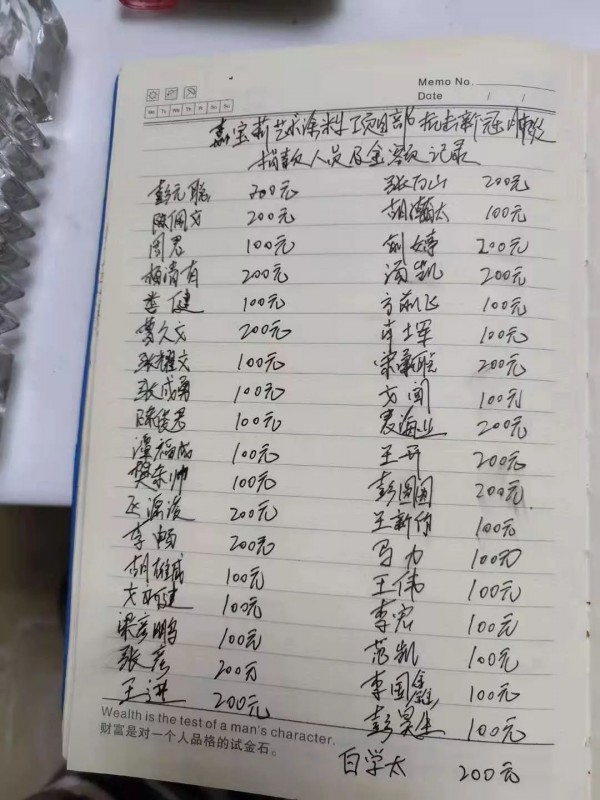 Memo No.
Date / /
Mo Tu We Th Fr Sa Su
嘉宝莉艺术涂料工项目部抗击新冠肺炎
捐款人员及金额记录
彭元聪 200元 张万山 200元
陈佩文 200元 胡瀚太 100元
周君 100元 刘婷 200元
杨清有 200元 汤凯 200元
娄健 100元 方前飞 100元
曾久文 200元 肖士军 100元
张耀文 100元 宋新皖 200元
张成勇 100元 戈闻 100元
陈俊君 100元 袁海业 200元
潭福成 100元 王开 200元
樊东帅 100元 彭园园 200元
200元 王新付 100元
李畅 200元 马力 100元
胡雄威 100元 王伟 100元
戈明建 100元 李宏 100元
梁彦鹏 100元 范凯 100元
张彦 200元 李国鑫 100元
王进 200元 彭昊生 100元
Wealth is the test of a man's character.
财富是对一个人品格的试金石。
白学太 200元